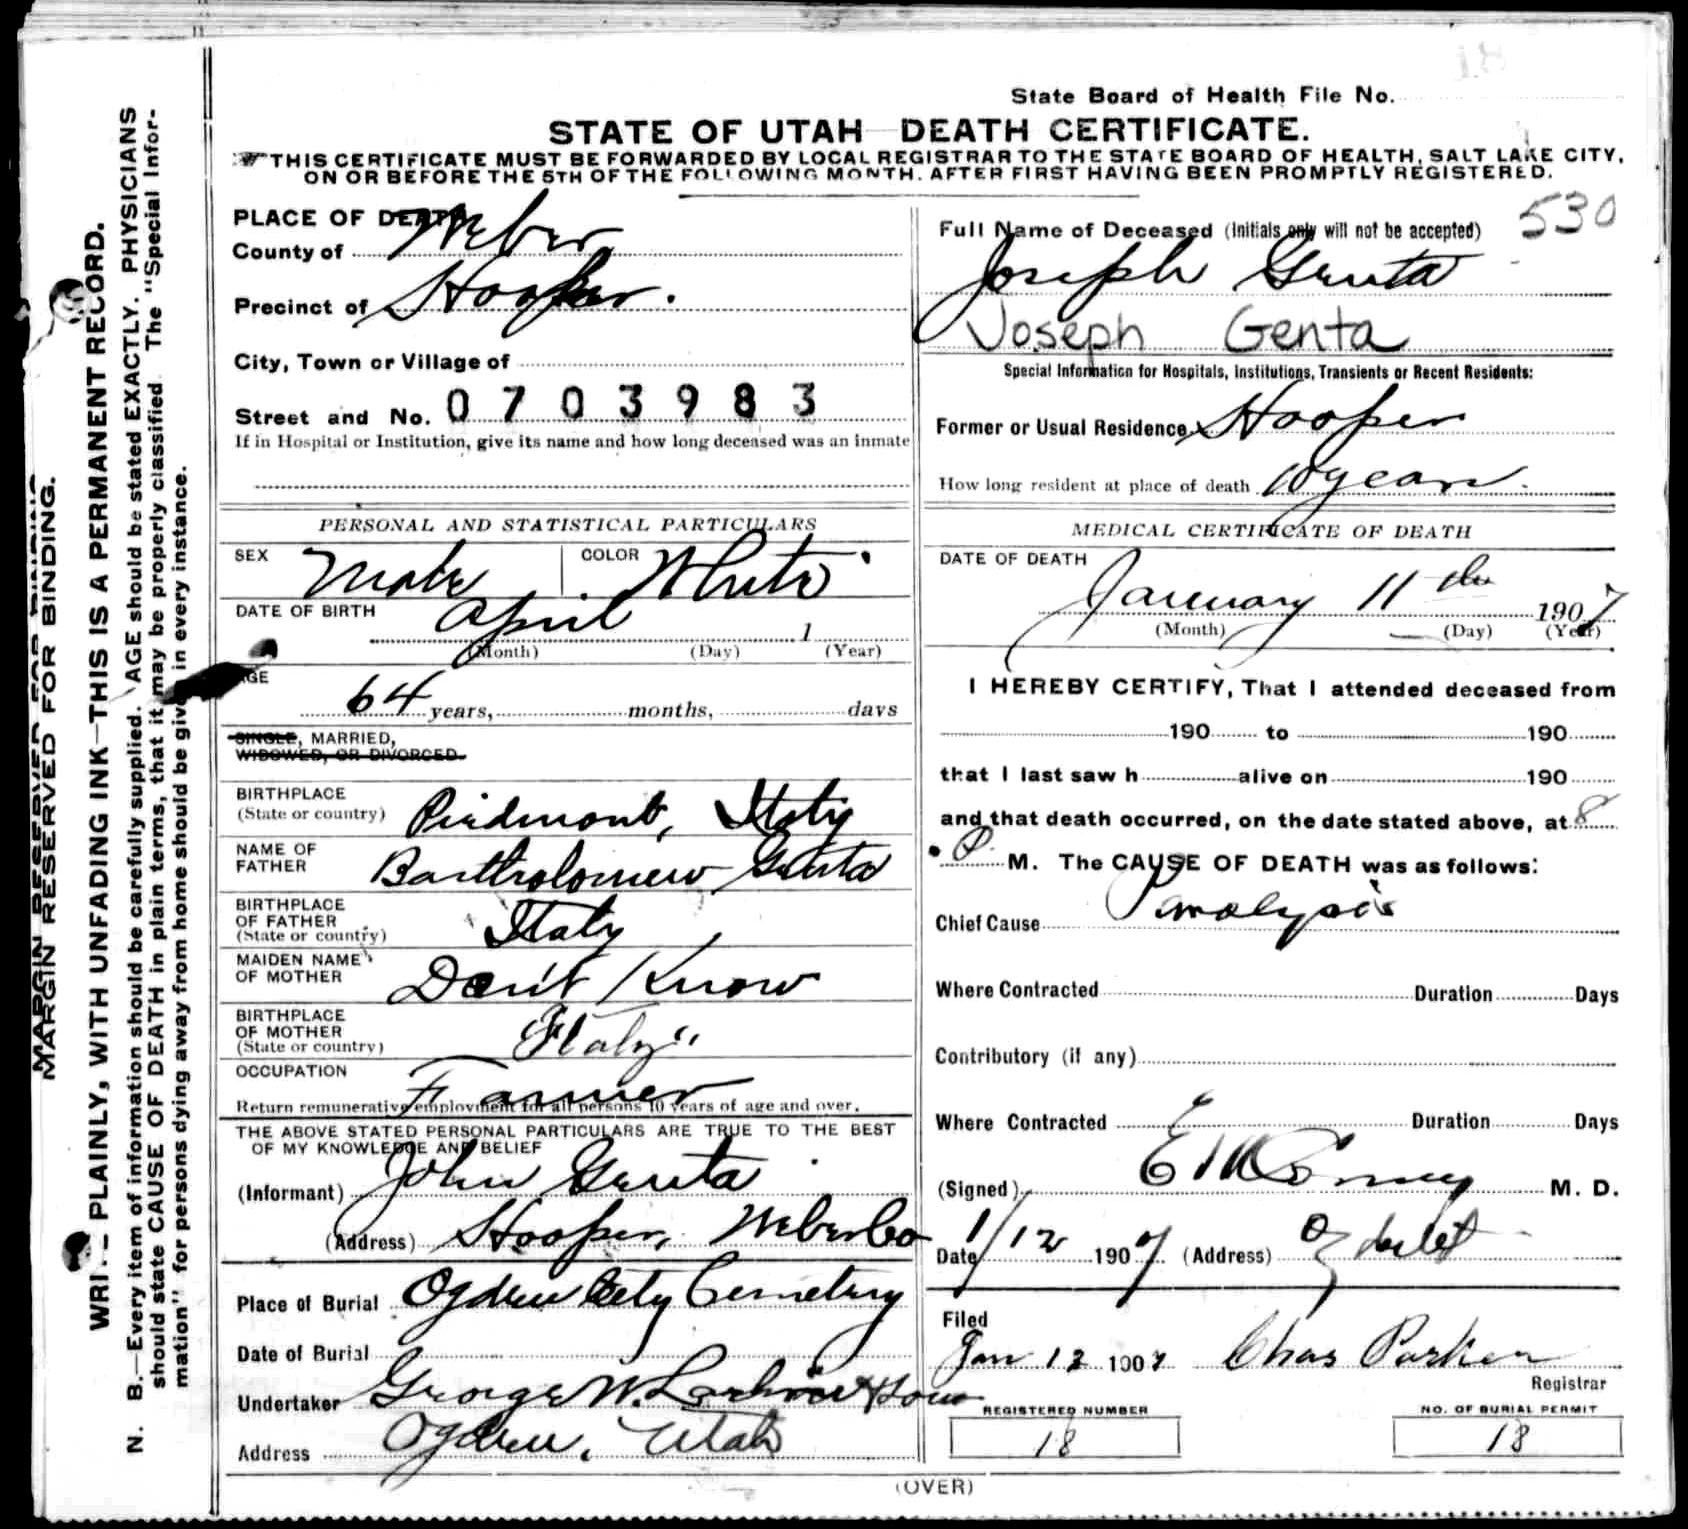 18
State Board of Health File No.
STATE OF UTAH—DEATH CERTIFICATE.
THIS CERTIFICATE MUST BE FORWARDED BY LOCAL REGISTRAR TO THE STATE BOARD OF HEALTH, SALT LAKE CITY,
ON OR BEFORE THE 5TH OF THE FOLLOWING MONTH. AFTER FIRST HAVING BEEN PROMPTLY REGISTERED.
PLACE OF DEATH
County of Weber
Precinct of Hooper.
City, Town or Village of
Street and No. 0703983
If in Hospital or Institution, give its name and how long deceased was an inmate
PERSONAL AND STATISTICAL PARTICULARS
SEX Male COLOR White
DATE OF BIRTH April 1
(Month) (Day) (Year)
AGE
64 years, months, days
SINGLE, MARRIED,
WIDOWED, OR DIVORCED.
BIRTHPLACE
(State or country) Piedmont, Italy
NAME OF
FATHER Bartholomew Genta
BIRTHPLACE
OF FATHER
(State or country) Italy
MAIDEN NAME
OF MOTHER Don't Know
BIRTHPLACE
OF MOTHER
(State or country) Italy
OCCUPATION Farmer
Return remunerative employment for all persons 10 years of age and over.
THE ABOVE STATED PERSONAL PARTICULARS ARE TRUE TO THE BEST
OF MY KNOWLEDGE AND BELIEF
(Informant) John Genta
(Address) Hooper, Weber Co
Place of Burial Ogden City Cemetery
Date of Burial
Undertaker George W. Larkin & Sons
Address Ogden, Utah
530
Full Name of Deceased (Initials only will not be accepted)
Joseph Genta
Joseph Genta
Special Information for Hospitals, Institutions, Transients or Recent Residents:
Former or Usual Residence Hooper
How long resident at place of death 10 years.
MEDICAL CERTIFICATE OF DEATH
DATE OF DEATH
January 11th 1907
(Month) (Day) (Year)
I HEREBY CERTIFY, That I attended deceased from
190 to 190
that I last saw h alive on 190
and that death occurred, on the date stated above, at 8
P. M. The CAUSE OF DEATH was as follows:
Chief Cause Paralysis
Where Contracted Duration Days
Contributory (if any)
Where Contracted Duration Days
(Signed) M. D.
Date 1/12 1907 (Address)
Filed
Jan 12 1907 Chas Parker
Registrar
REGISTERED NUMBER
18
NO. OF BURIAL PERMIT
18
(OVER)
MARGIN RESERVED FOR BINDING
MARGIN RESERVED FOR BINDING.
WRITE PLAINLY, WITH UNFADING INK—THIS IS A PERMANENT RECORD.
N. B.—Every item of information should be carefully supplied. AGE should be stated EXACTLY. PHYSICIANS
should state CAUSE OF DEATH in plain terms, that it may be properly classified. The "Special Infor-
mation" for persons dying away from home should be given in every instance.